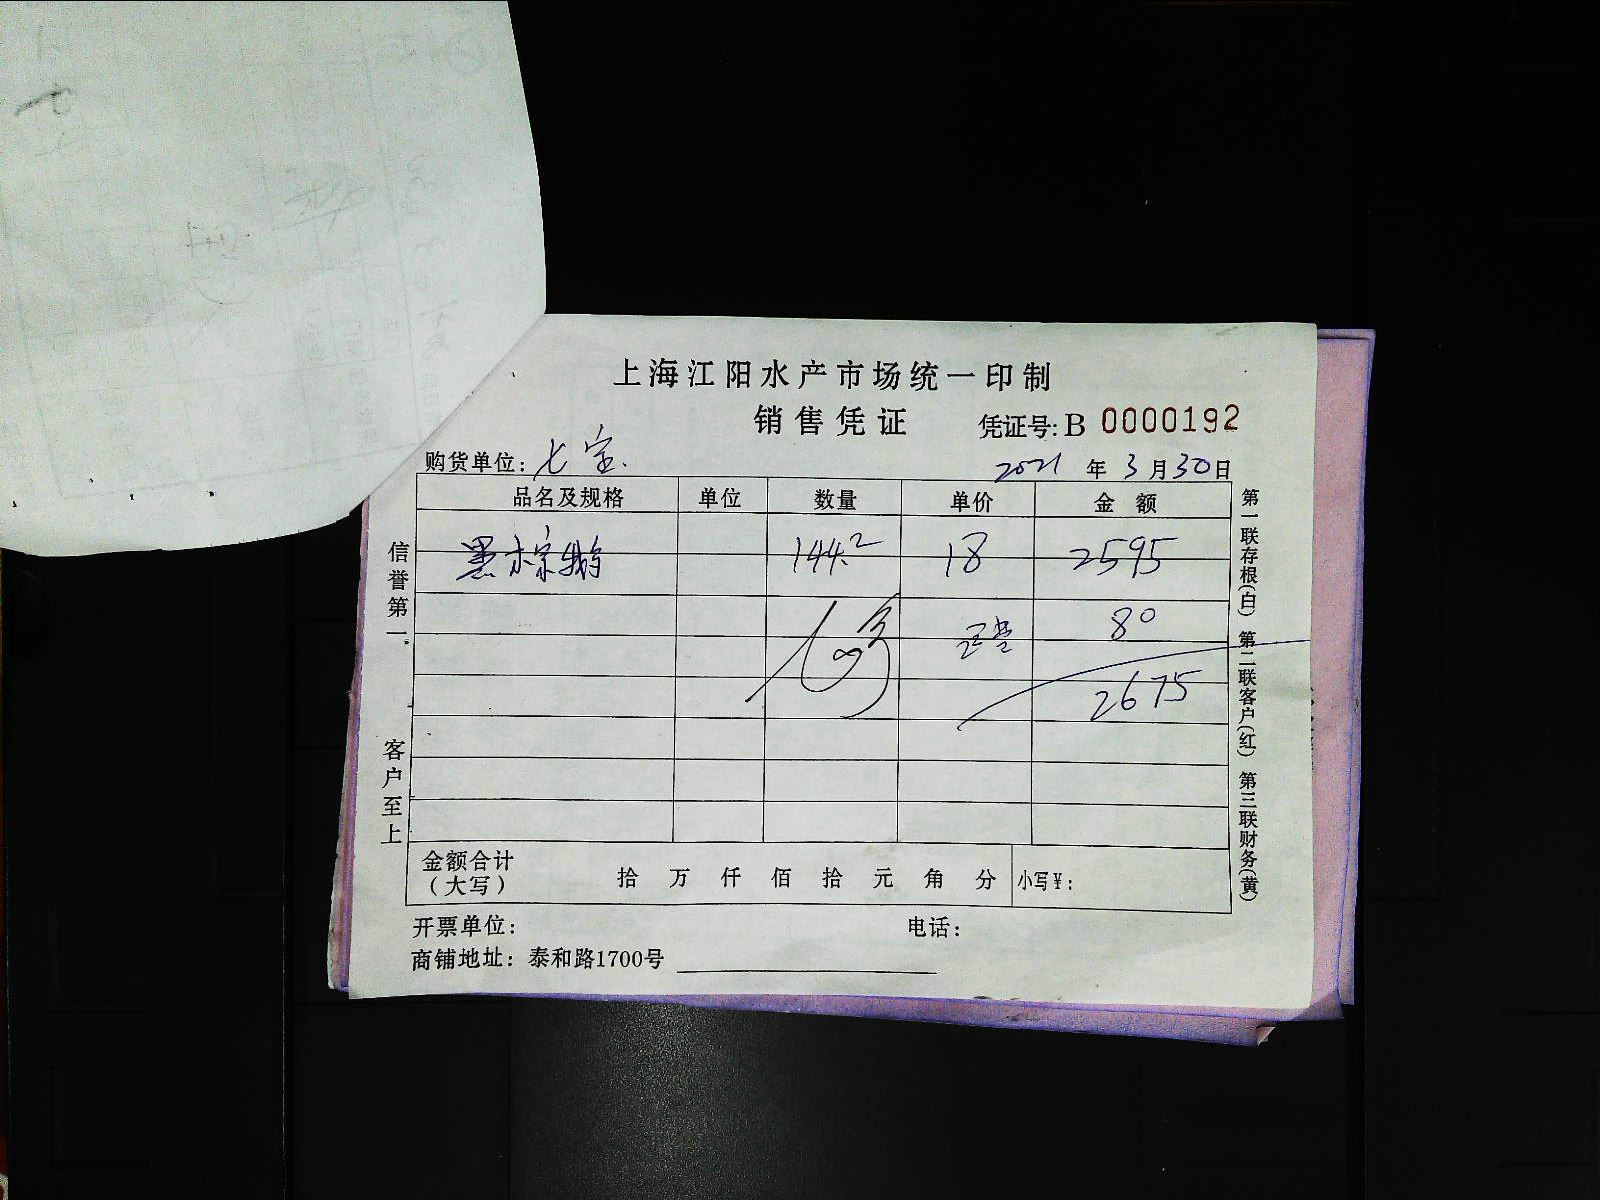 上海江阳水产市场统一印制
销售凭证
凭证号: B 0000192
购货单位: 七宝.
2021 年 3 月 30 日
品名及规格 单位 数量 单价 金额
黑棕鹅 144.2 18 2595
80
2675
金额合计
(大写)
拾 万 仟 佰 拾 元 角 分 小写¥:
开票单位: 电话:
商铺地址: 泰和路1700号
信誉第一
客户至上
第一联存根(白) 第二联客户(红) 第三联财务(黄)